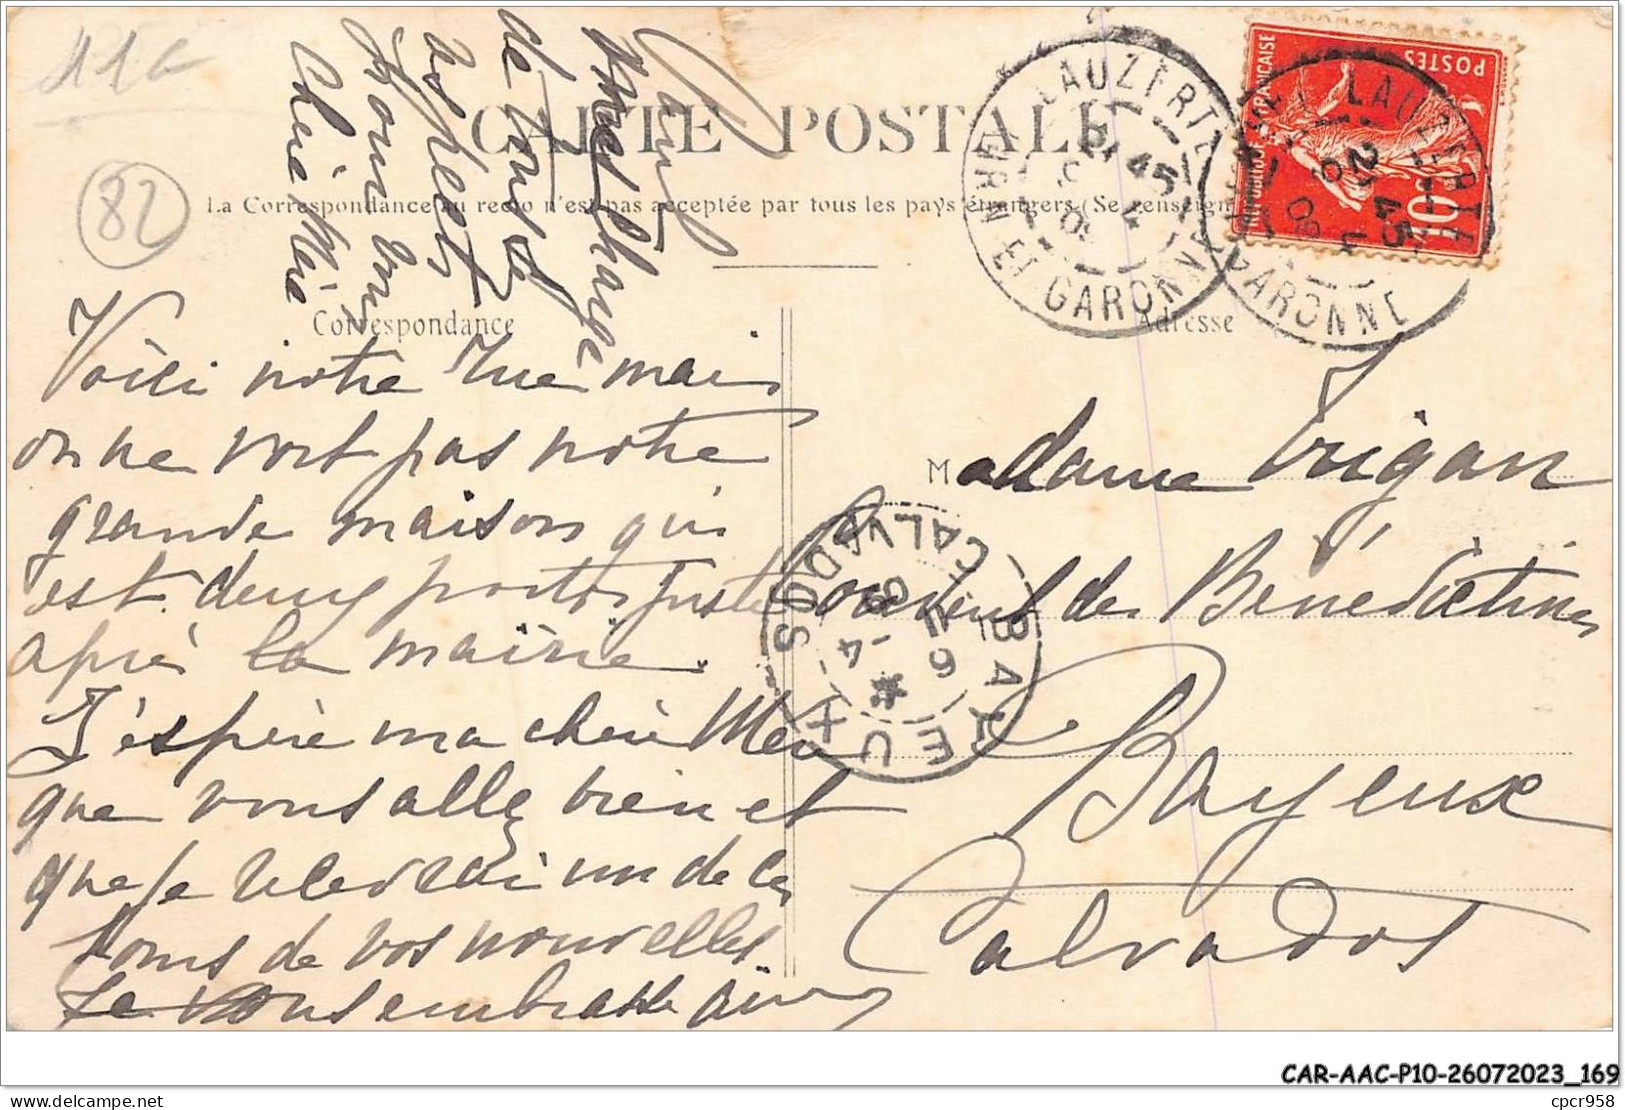 11 c
82
CARTE POSTALE
La Correspondance au recto n'est pas acceptée par tous les pays étrangers (Se renseign
Correspondance
Adresse
LAUZERTE
TARN ET GARONNE
21 45
4
LAUZERTE
GARONNE
21 45
4
09
POSTES
10
Voici notre rue mais
on ne voit pas notre
grande maison qui
est deux portes juste
après la mairie.
J'espère ma chère Mère
que vous allez bien et
que je recevrai un de ces
jours de vos nouvelles
Je vous embrasse ainsi
Chère Mère
bonnes
respects
de tous et
Ange
Madame Trigan
Couvent des Bénédictines
Bayeux
Calvados
BAYEUX
CALVADOS
6
-4
09
CAR-AAC-P10-26072023_169
cpcr958